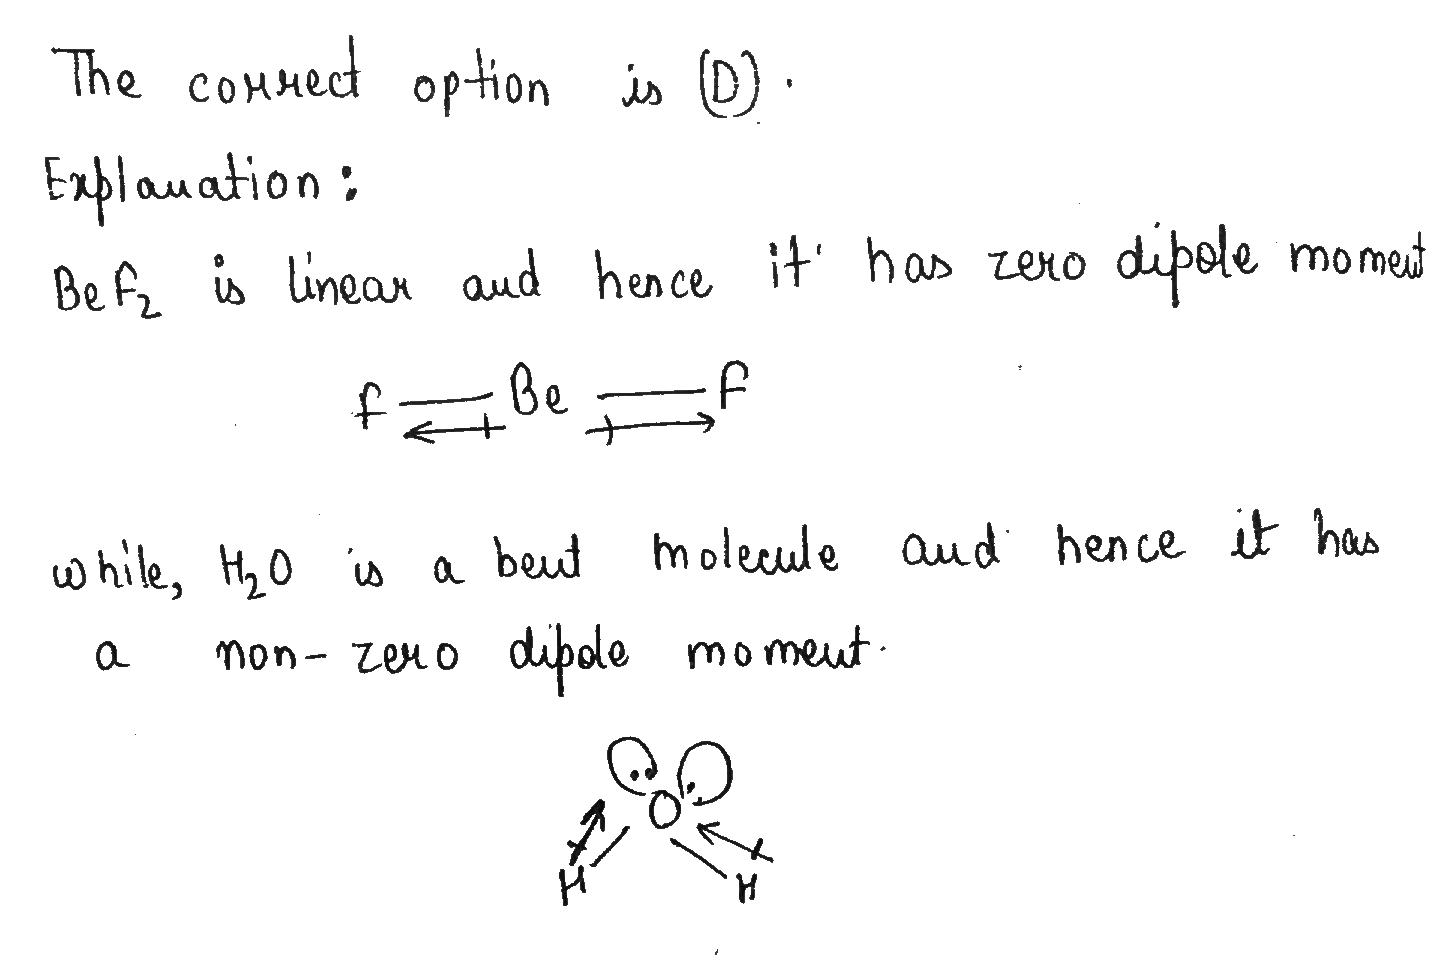 The correct option is (D).
Explanation:
BeF₂ is linear and hence it has zero dipole moment
F Be F
while, H₂O is a bent molecule and hence it has
a non-zero dipole moment.
O
H H